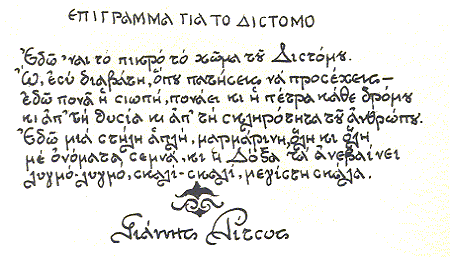 ΕΠΙΓΡΑΜΜΑ ΓΙΑ ΤΟ ΔΙΣΤΟΜΟ
Ἐδῶ 'ναι τὸ πικρὸ τὸ χῶμα τοῦ Διστόμου.
Ὦ, ἐσὺ διαβάτη, ὅπου πατήσεις νὰ προσέχεις –
ἐδῶ πονᾶ ἡ σιωπή, πονάει κι ἡ πέτρα κάθε δρόμου
κι ἀπ' τὴ θυσία κι ἀπ' τὴ σκληρότητα τοῦ ἀνθρώπου.
Ἐδῶ μιὰ στήλη ἁπλή, μαρμάρινη, ὅλη κι ὅλη
μὲ ὀνόματα σεμνά, κι ἡ Δόξα τὰ ἀνεβαίνει
λυγμὸ-λυγμό, σκαλὶ-σκαλί, μεγίστη σκάλα.
Γιάννης Ρίτσος